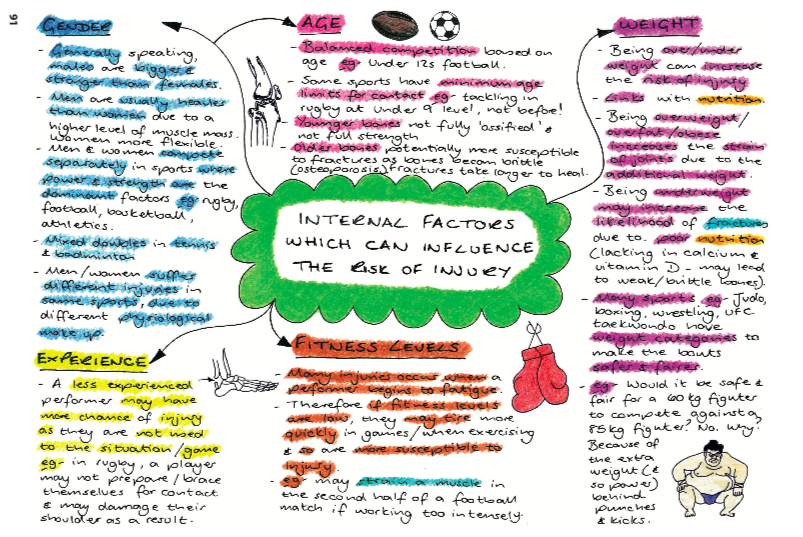 16
GENDER
- Generally speaking,
males are bigger &
stronger than females.
- Men are usually heavier
than women due to a
higher level of muscle mass.
Women more flexible.
- Men & women compete
separately in sports where
power & strength are the
dominant factors eg rugby,
football, basketball,
athletics.
- Mixed doubles in tennis
& badminton
- Men/women suffer
different injuries in
same sports, due to
different physiological
make up.
AGE
- Balanced competition based on
age eg Under 12s football.
- Some sports have minimum age
limits for contact eg- tackling in
rugby at under 9 level, not before!
- Younger bones not fully 'ossified' &
not full strength
- Older bones potentially more susceptible
to fractures as bones becom brittle
(osteoporosis) Fractures take longer to heal.
WEIGHT
- Being over/under
weight can increase
the risk of injury
- Links with nutrition.
- Being overweight/
overfat/obese
increases the strain
of joints due to the
additional weight.
- Being underweight
may increase the
likelihood of fractures
due to poor nutrition
(lacking in calcium &
vitamin D - may lead
to weak/brittle bones).
- Many sports eg- Judo,
boxing, wrestling, UFC
taekwondo have
weight categories to
make the bouts
safer & fairer.
- eg- Would it be safe &
fair for a 60kg fighter
to compete against a
85kg fighter? No. Why?
Because of
the extra
weight (&
so power)
behind
punches
& kicks.
INTERNAL FACTORS
WHICH CAN INFLUENCE
THE RISK OF INJURY
EXPERIENCE
- A less experienced
performer may have
more chance of injury
as they are not used
to the situation/game
eg- in rugby, a player
may not prepare/brace
themselves for contact
& may damage their
shoulder as a result.
FITNESS LEVELS
- Many injuries occur when a
performer begins to fatigue.
- Therefore if fitness levels
are low, they may tire more
quickly in games/when exercising
& so are more susceptible to
injury.
- eg- may strain a muscle in
the second half of a football
match if working too intensely.